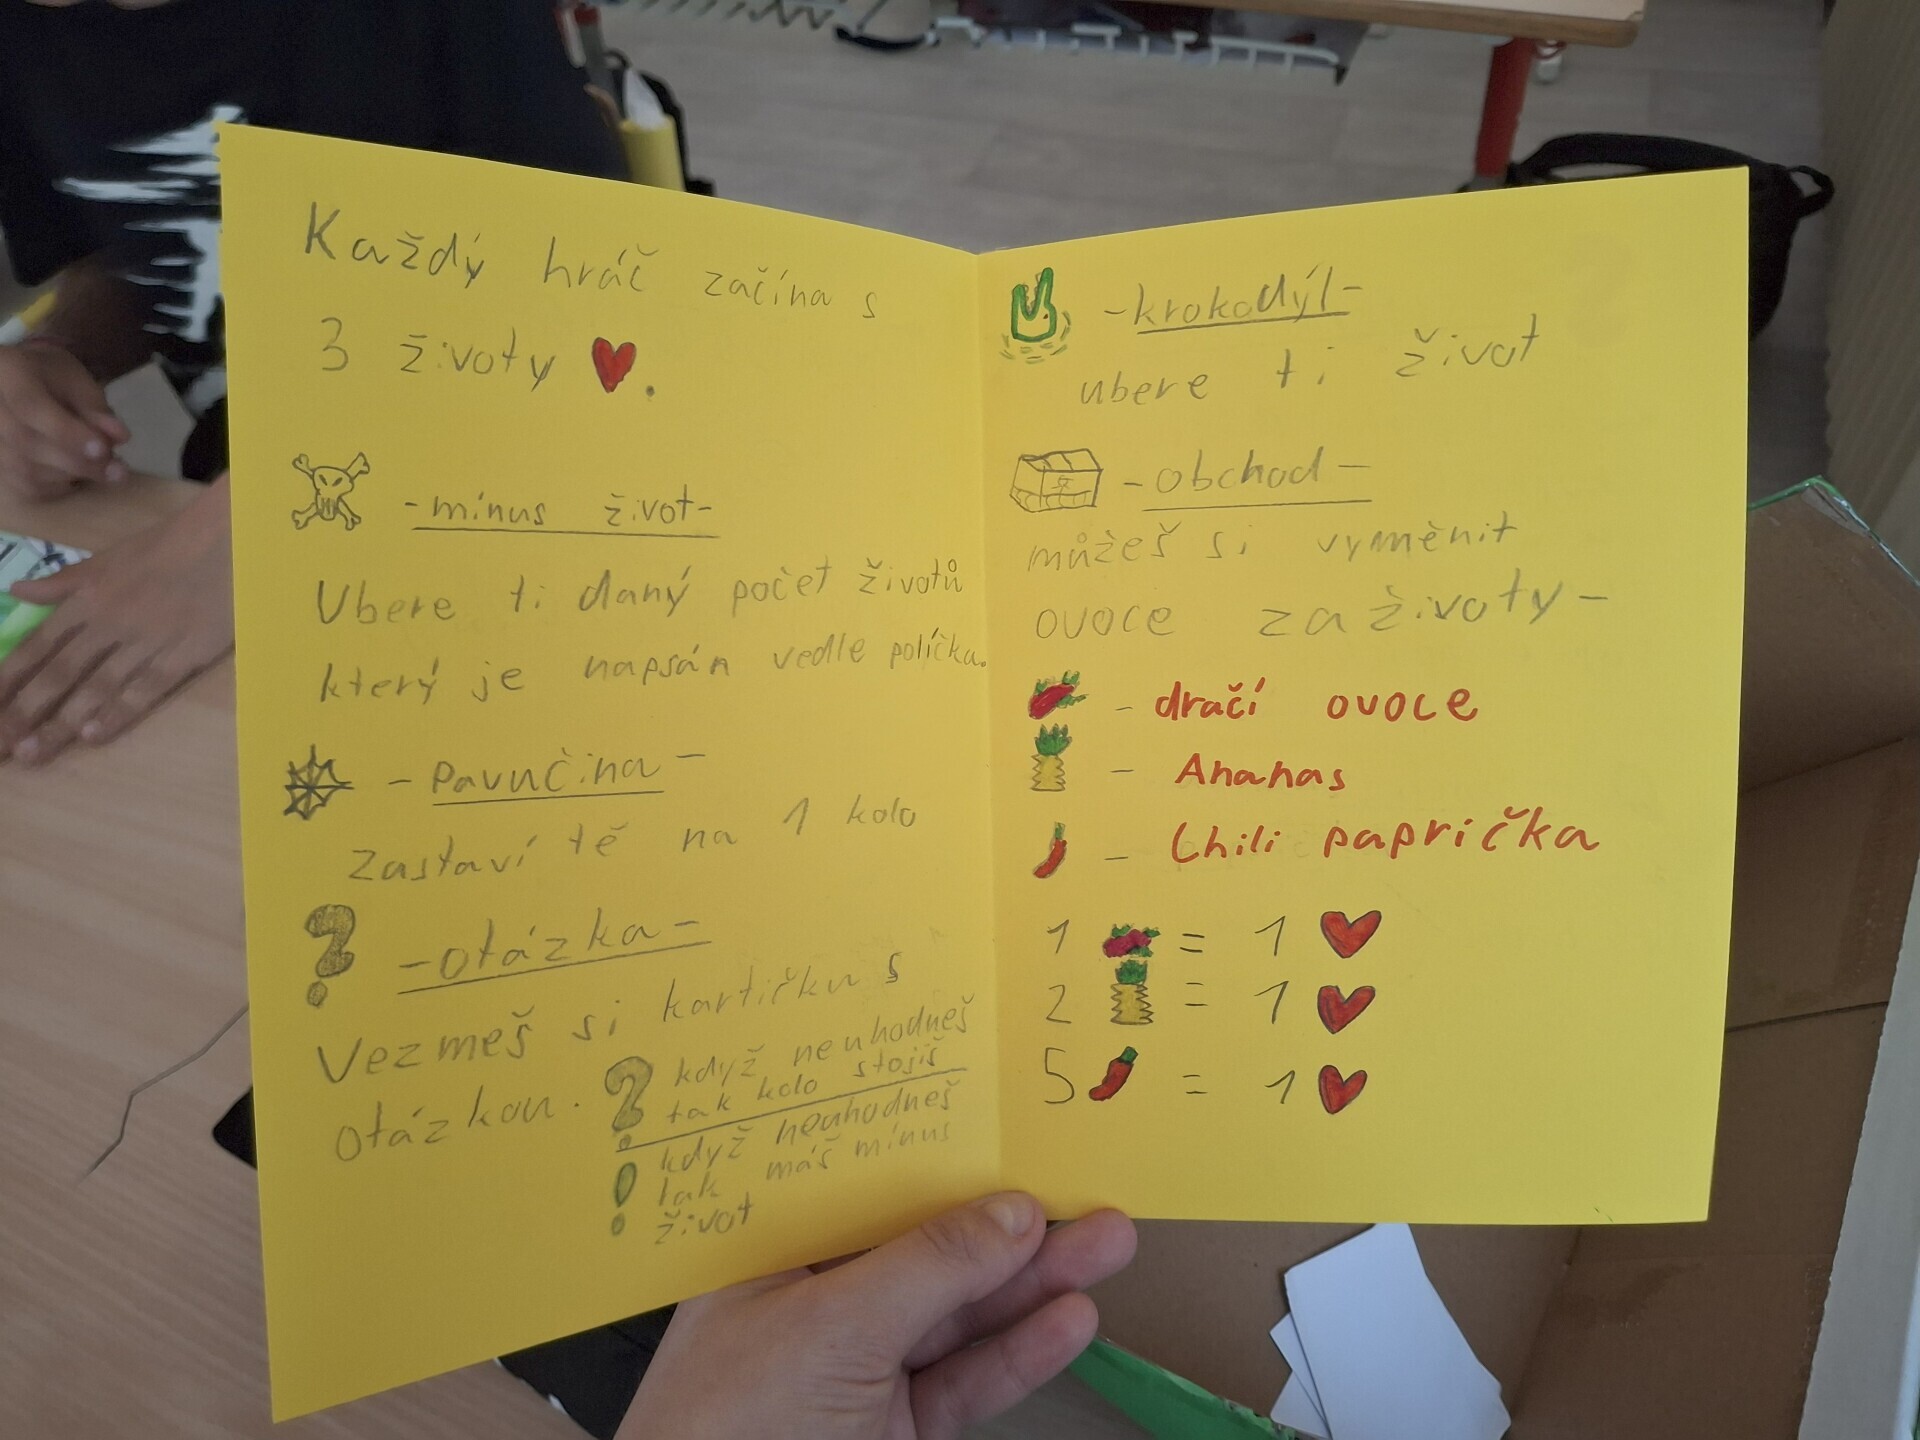 Každý hráč začína s
3 životy
-mínus život-
Ubere ti daný počet životů
který je napsán vedle políčka.
- Pavučina -
zastaví tě na 1 kolo
?
-otázka-
Vezmeš si kartičku s
otázkou.
? když neuhodneš
tak kolo stojíš
! když neuhodneš
tak máš mínus
život
-krokodýl-
ubere ti život
- obchod -
můžeš si vyměnit
ovoce za životy -
- dračí ovoce
- Ananas
- Chili paprička
1 = 1
2 = 1
5 = 1